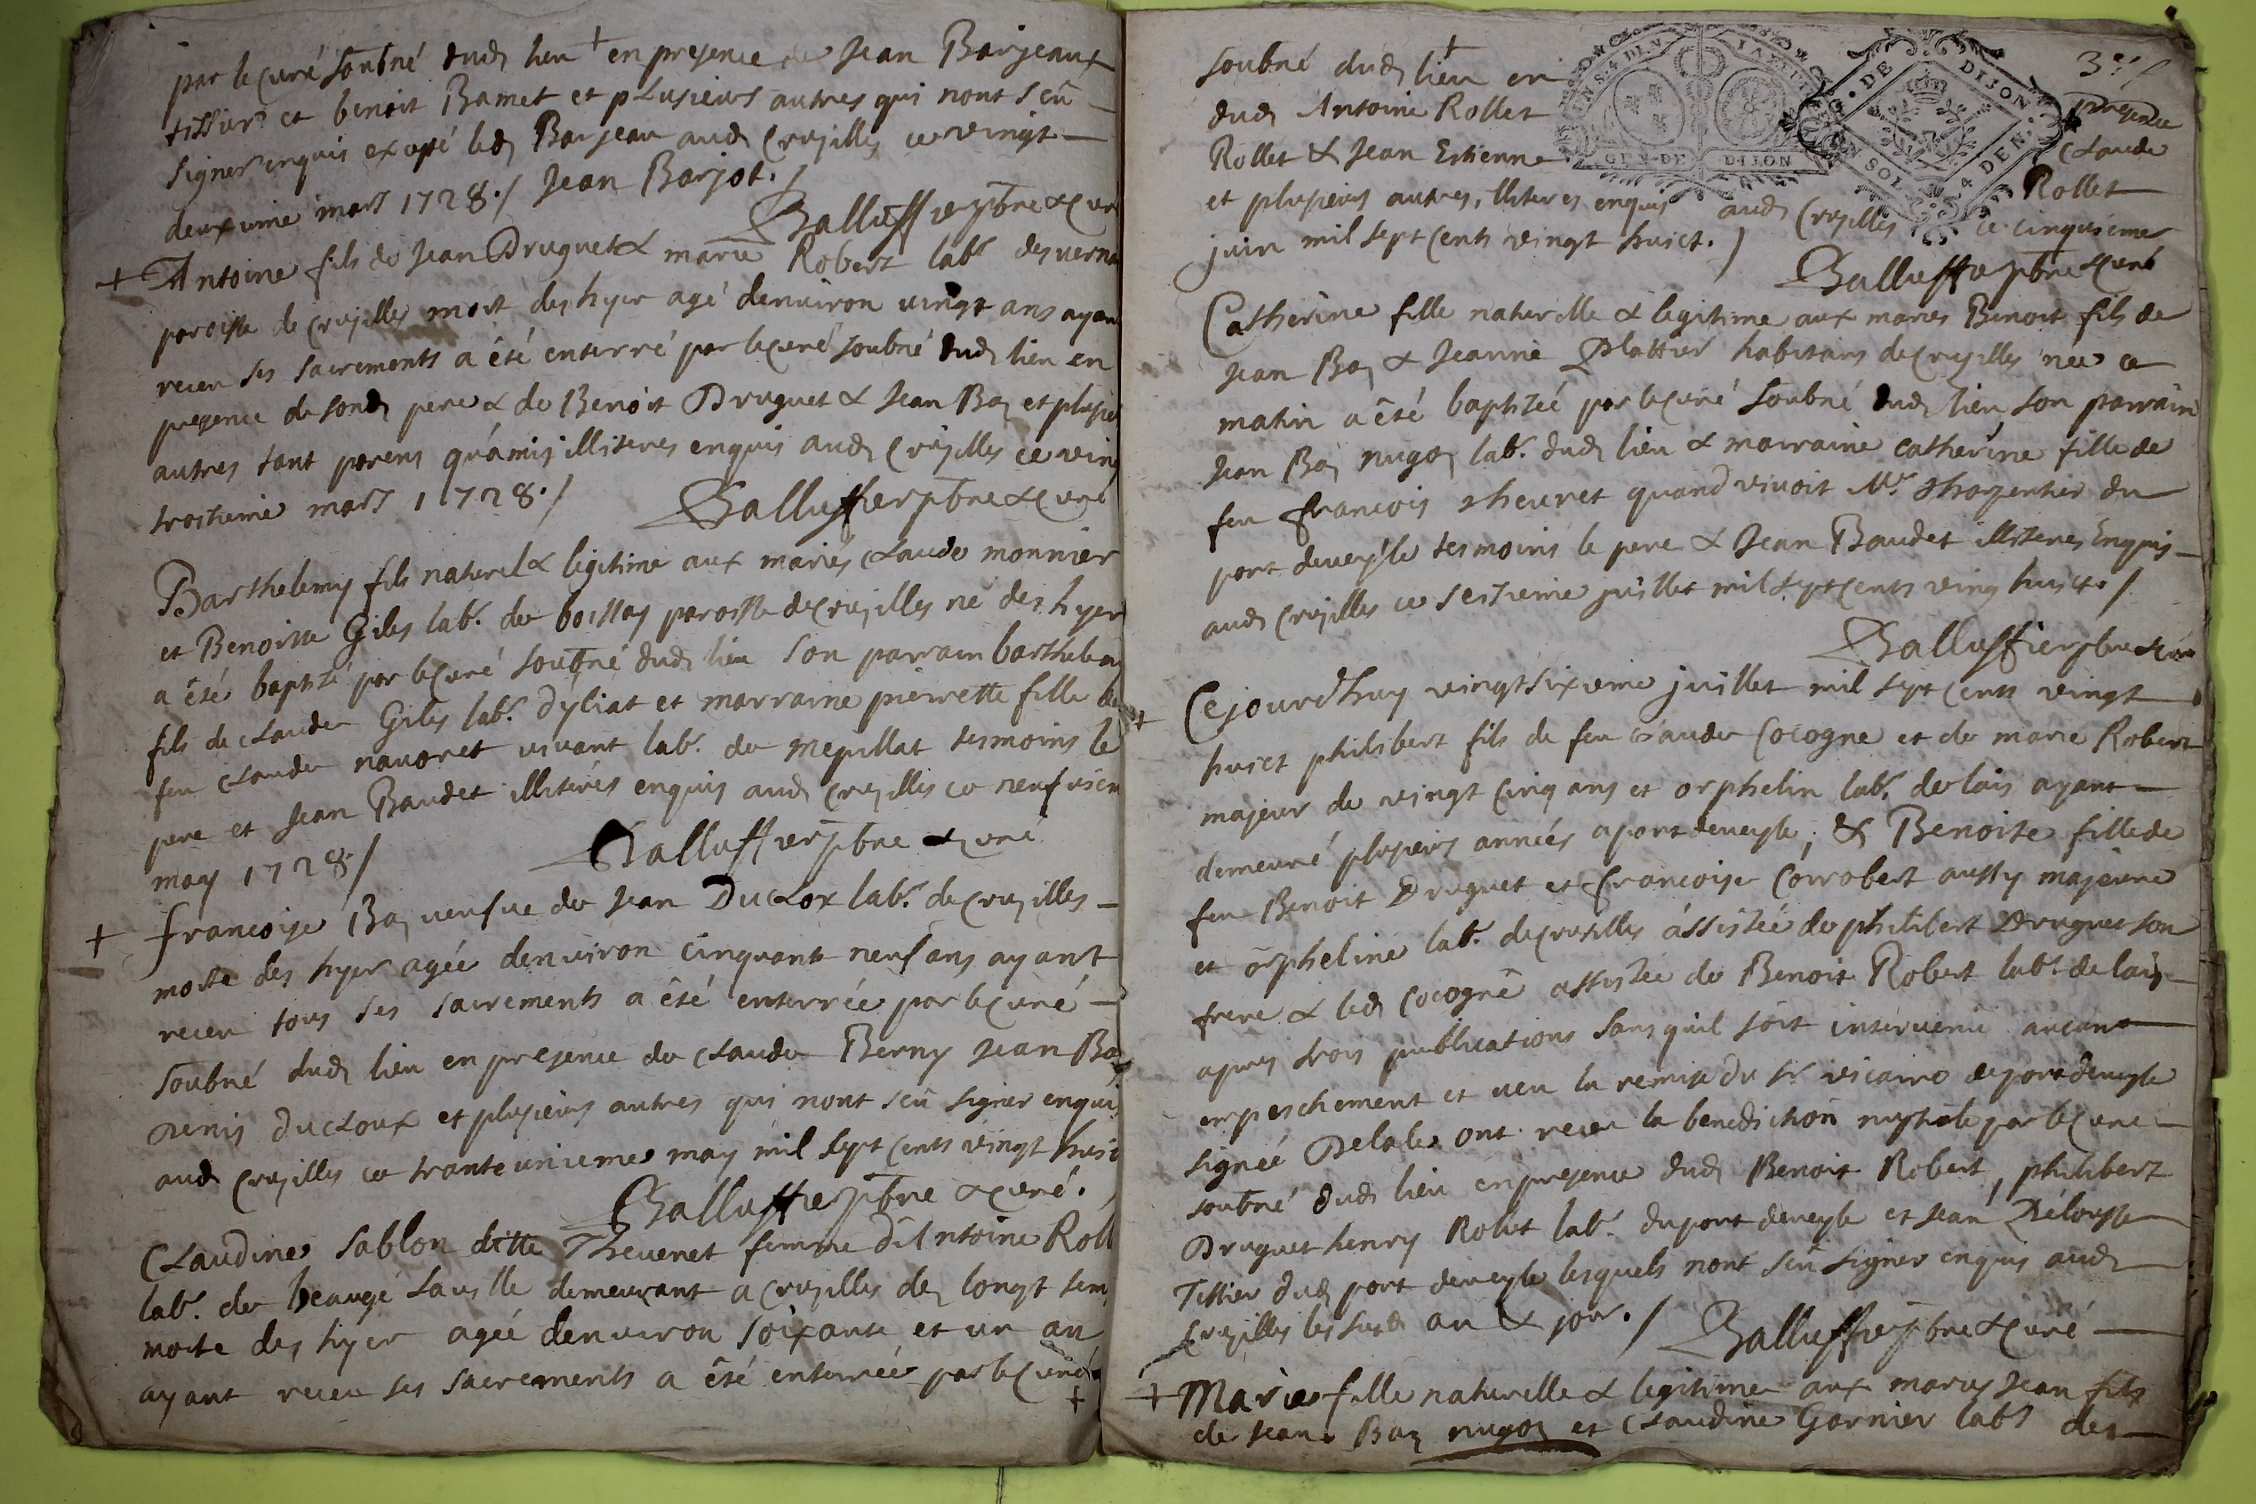 par le curé soubné dud lieu + en presence de Jean Barjeaux
tissier et benoit Bamet et plusieurs autres qui nont sceu
signer enquis excepé led Barjeau aud Crusilles ce vingt
deuxieme mars 1728./ Jean Barjot./
Balluffier pbre & curé
+ Antoine fils de Jean Druguet & marie Robert lab.r des verna
paroisse de Crusilles mort des hyer agé denviron vingt ans ayan
receu ses sacrements a êté enterré par le curé soubné dud lieu en
presence de sond pere & de Benoit Druguet & Jean Ba et plusie
autres tant parens qu'amis illiteres enquis aud Crusilles ce vin
troisieme mars 1728./
Balluffier pbre & curé
Barthelemy fils naturel & legitime aux mariés Claude monnier
et Benoitte Giles lab.r de boissay paroisse de Crusilles né des hyer
a êté baptisé par le curé soubné dud lieu son parrain barthelem
fils de Claude Giles lab.r dyliat et marraine pierrette fille de
feu Claude navoret vivant lab.r de mepillat tesmoins le
pere et Jean Baudet illiterés enquis aud Crusilles ce neufviem
may 1728./
Balluffier pbre & curé
+ francoise Ba veufve de Jean Duclox lab.r de Crusilles
morte des hyer agée denviron cinquante neuf ans ayant
receu tous ses sacrements a êté enterrée par le curé
soubné dud lieu en presence de Claude Berny Jean Ba
Denis Ducloux et plusieurs autres qui nont sceu signer enquis
aud Crusilles ce trante unieme may mil sept cents vingt huict
Balluffier pbre & curé.
Claudine Sablon ditte Thevenet femme d'Antoine Roll
lab.r de beaugé la ville demeurant a Crusilles de longt tem
morte des hyer agée denviron soixante et un an
ayant receu ses sacrements a êté enterrée par le curé
+
3
soubné dud lieu + en presence
dud Antoine Rollet Claude
Rollet & Jean Estienne Rollet
et plusieurs autres illiteres enquis aud Crusilles ce cinquieme
juin mil sept cents vingt huict./
Balluffier pbre & curé
GEN. DE DIJON
G. DE DIJON
UN SOL 4 DEN.
Catherine fille naturelle & legitime aux maries Benoit fils de
Jean Ba & Jeanne Plattier habitans de Crusilles neé ce
matin a êté baptisée par le curé soubné dud lieu son parrain
Jean Ba nugo lab.r dud lieu & marraine catherine fille de
feu francois theuret quand vivoit M.e Charpentier du
port deveyle tesmoins le pere & Jean Baudet illiteres Enquis
aud Crusilles ce seitieme juillet mil sept cents ving huict./
Balluffier pbre & curé
+ Cejourdhuy vingt sixieme juillet mil sept cents vingt
huict philibert fils de feu Claude Cocogne et de marie Robert
majeur de vingt cinq ans et orphelin lab.r de lais ayant
demeuré plusieurs années a pont deveyle, & Benoite fille de
feu Benoit Druguet et francoise Corrobert aussy majeure
et orpheline lab.r de Crusilles assistée de philibert Druguet son
frere & led Cocogne assistée de Benoit Robert lab.r de lais
apres trois publications sans quil soit intervenu aucune
empeschement et veu la remise du s.r vicaire de pont deveyle
signée Delale ont receu la benediction nuptiale par le curé
soubné dud lieu en presence dud Benoit Robert, philibert
Druguet henry Robet lab.r du pont deveyle et Jean Delouste
Tissier dud pont deveyle lesquels nont sceu signer enquis aud
Crusilles les susd an & jour./ Balluffier pbre & curé
+ Marie fille naturelle & legitime aux maries Jean fils
de Jean Ba nugo et Claudine Garnier lab.r des